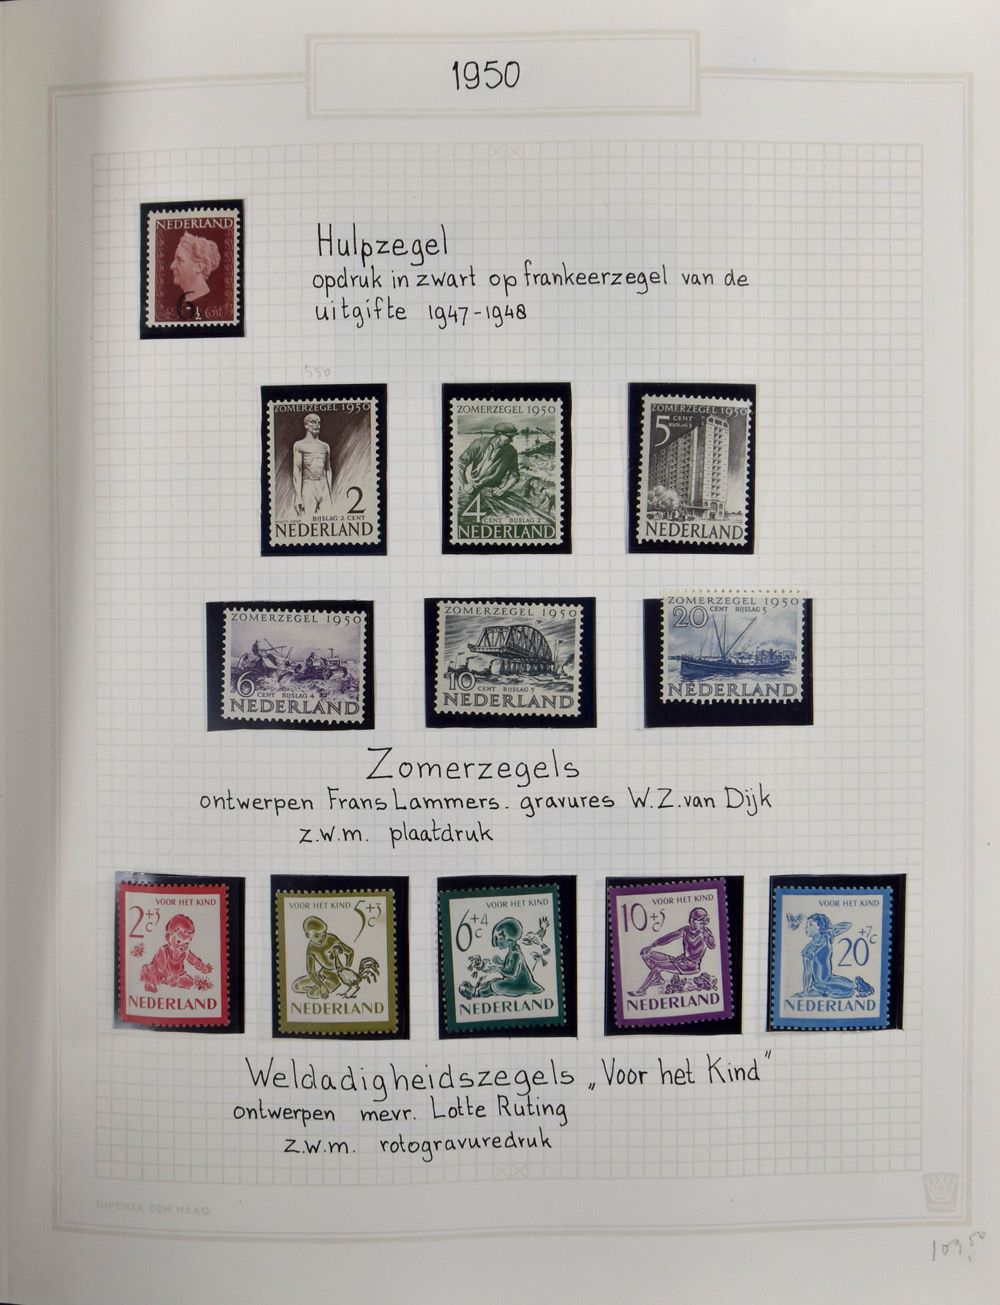 1950
NEDERLAND
6
½ Cent
Hulpzegel
opdruk in zwart op frankeerzegel van de
uitgifte 1947-1948
550
ZOMERZEGEL 1950
2
BIJSLAG 2 CENT
NEDERLAND
ZOMERZEGEL 1950
4
CENT BIJSLAG 2
NEDERLAND
ZOMERZEGEL 1950
5
CENT
NEDERLAND
ZOMERZEGEL 1950
6
CENT BIJSLAG 4
NEDERLAND
ZOMERZEGEL 1950
10
CENT BIJSLAG 5
NEDERLAND
ZOMERZEGEL 1950
20 CENT BIJSLAG 5
NEDERLAND
Zomerzegels
ontwerpen Frans Lammers. gravures W.Z.van Dijk
z.w.m. plaatdruk
VOOR HET KIND
2+3c
NEDERLAND
VOOR HET KIND
5+3c
NEDERLAND
VOOR HET KIND
6+4c
NEDERLAND
VOOR HET KIND
10+5c
NEDERLAND
VOOR HET KIND
20+7c
NEDERLAND
Weldadigheidszegels „Voor het Kind"
ontwerpen mevr. Lotte Ruting
z.w.m. rotogravuredruk
IMPORTA DEN HAAG
109,50